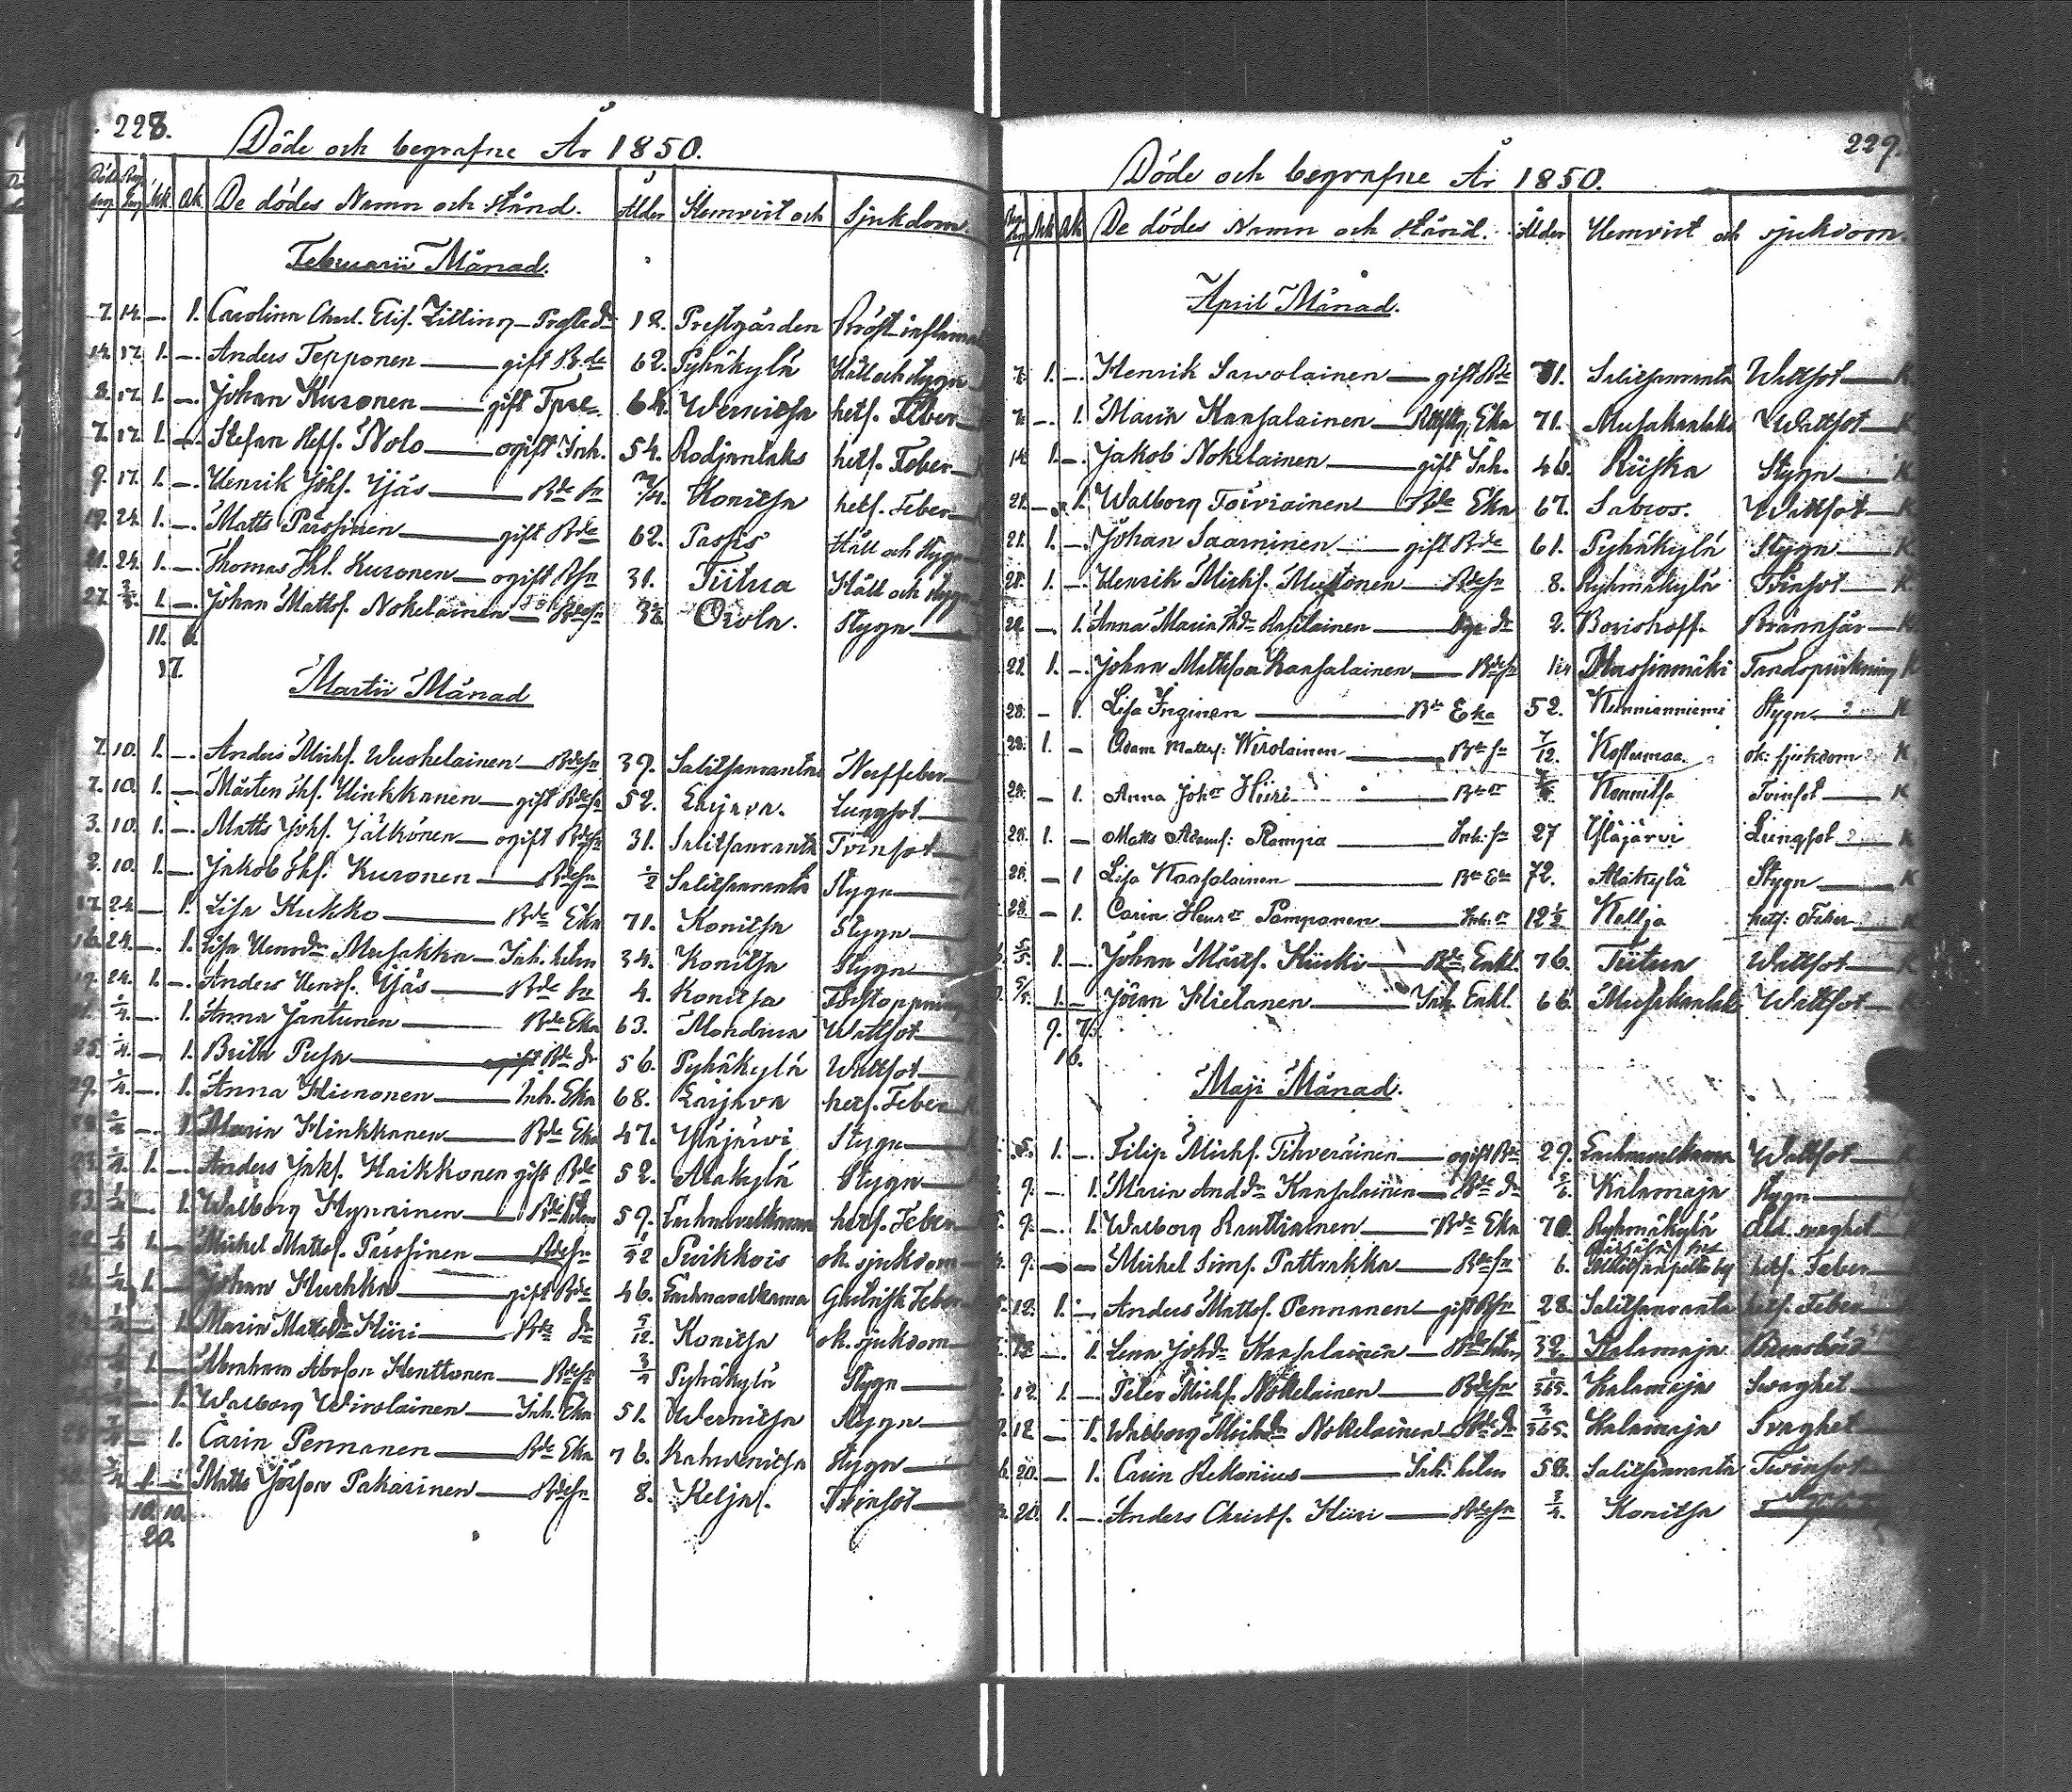 228.
Döde och begrafne År 1850.
De dödes Namn och Stånd. Ålder Hemvist och Sjukdom.
Februarii Månad.
7. 14. — 1. Carolina Charl. Elis. Zitting 12. Prestgården Bröst inflam
14. 17. 1. — Anders Tepponen gift Bde 62. Pyhäkylä Håll och stygn
8. 17. 1. — Johan Kuronen gift 64. Wernitsa hets. Feber
7. 17. 1. — Stefan Stefs. Nolo ogift Inh. 54. Rodjanlaks hets. Feber
9. 17. 1. — Henrik Johs. Yjäs Bde Sn Konitsa hets. Feber
19. 24. 1. — Matts Pärssinen gift Bde 62. Passis Håll och Stygn
21. 24. 1. — Thomas Thl. Kuronen ogift Bsn 31. Tiitua Håll och stygn
27. 3/3. 1. — Johan Mattss. Nokelainen Bdesn Orola. Stygn
11. 6.
17.
Martii Månad
7. 10. 1. — Anders Michs. Wuokelainen Bdesn 39. Salitsanranta Nerffeber
7. 10. 1. — Mårten Hinkkanen gift Bdesn 52. Laijava. Lungsot
3. 10. 1. — Matts Johs. Jälkönen ogift Bdesn 31. Salitsanranta Tvinsot
2. 10. 1. — Jakob Kuronen Bdesn 1/2 Salitsanranta Stygn
17. 24. — 1. Lisa Kukko Bde Eka 71. Konitsa Stygn
16. 24. — 1. Lisa Henrdr Musakka Inh. hstru 34. Konitsa Stygn
19. 24. 1. — Anders Henrs. Yjäs Bde sn 4. Konitsa
1/4. — 1. Anna Jantunen Bde Eka 63. Mondrua Wattsot
25. 1/4. — 1. Brita Pusa Bde dr 56. Pyhäkylä Wattsot
29. 1/4. — 1. Anna Hienonen Inh. Eka 68. Laijava hets. Feber
— 1. Maria Hinkkanen Bde Eka 47. Yläjärvi Stygn
23. 1/4. 1. — Anders Jaks. Haikkonen gift Bde 52. Alakylä Stygn
1/4. — 1. Walborg Hynninen Bde hstru 59. hets. Feber
1/4 1. — Michel Mattss. Pärssinen Bdesn Puikkois ok. sjukdom
1/4 1. — Johan Kukka gift Bde 46. Feber
1/4 — 1. Maria Mattsdr Hiiri Bde dr 5/12. Konitsa ok. sjukdom
1. — Abraham Abrson Henttonen Bdesn 3/4 Pyhäkylä Stygn
— 1. Walborg Wirolainen Inh. Eka 51. Wernitsa Stygn
— 1. Carin Pennanen Bde Eka 76. Stygn
1. — Matts Jörsson Pakarinen Bdesn 8. Kelja. Tvinsot
10. 10.
20.
229.
Döde och begrafne År 1850.
De dödes Namn och Stånd. Ålder Hemvist och sjukdom.
April Månad.
7. 1. — Henrik Sawolainen gift Bde 71. Salitsanranta Wattsot K
7. — 1. Maria Kansalainen Eka 71. Musakanlaks Wattsot K
14. 1. — Jakob Nokelainen gift Inh. 46. Riiska Stygn K
21. — 1. Walborg Toiviainen Bde Eka 67. Wattsot K
21. 1. — Johan Saarninen gift Bde 61. Pyhäkylä Stygn K
28. 1. — Henrik Michs. Mustonen Bdesn 8. Ryhmäkylä Tvinsot K
28. — 1. Anna Maria dr 2. Borishoff. Brännsår K
28. 1. — Johan Mattsson Kansalainen Bdesn Hassinmäki Tandsprickning K
28. — 1. Lisa Inginen Bde Eka 52. Kunnianniemi Stygn K
28. 1. — Adam Mattss: Wirolainen Bde sn 7/12. Koskemaa. ok: sjukdom K
28. — 1. Anna Johdr Hiiri Konnitsa Tvinsot K
28. 1. — Matts Adams: Rampia Inh: sn 27 Yläjärvi Lungsot K
28. — 1 Lisa Kansalainen Bde Eka 72. Alakylä Stygn K
28. — 1. Carin Henrdr Pamponen Inh: dr 12 1/2 Kellja hets: Feber
5/5. 1. — Johan Mårts. Kiuki Bde Enkl. 76. Tiitua Wattsot K
5/5. 1. — Jöran Hielanen Inh. Enkl. 66. Musakanlaks Wattsot K
9. 7.
16.
Maji Månad.
5. 1. — Filip Michs. Tihveräinen ogift Bde 29. Wattsot
9. — 1. Maria Anddr Kansalainen Bde dr Kalamaja Stygn
9. — 1. Walborg Ruuttiainen Bde Eka 70. Ryhmäkylä
9. — — Michel Sims. Pattrakka Bdesn 6. hets. Feber
12. 1. — Anders Mattss. Pennanen gift Bsn 28. Salitsanranta hets. Feber
12. — 1. Lena Johdr Kansalainen Bde hstru 32. Kalamaja Barnsbörd
12. 1. — Peter Michs. Nokelainen Bdesn Kalamaja Swaghet
12. — 1. Walborg Michdr Nokelainen Bde dr Kalamaja Svaghet
20. — 1. Carin Rekonius Inh. hstru 58. Salitsanranta Tvinsot
20. 1. — Anders Christs. Hiiri Bdesn 3/4. Konitsa Stygn